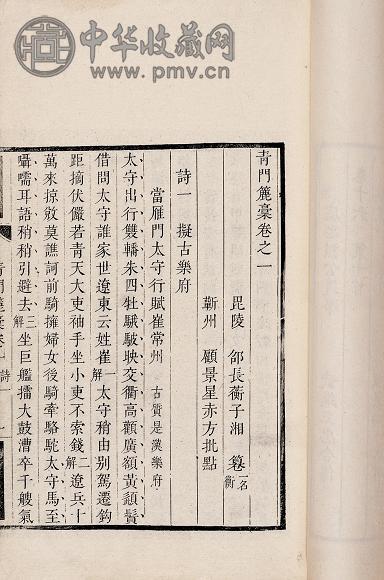 中华收藏网
www.pmv.cn
青門簏稾卷之一
毘陵　邵長蘅子湘　篹一名衡
蘄州　顧景星赤方批點
詩一　擬古樂府
當雁門太守行賦崔常州　古質是漢樂府
太守出行雙轓朱四牡駊駊映交衢高觀廣額黃顏鬢
借問太守誰家世遼東云姓崔一解太守稍由別駕遷鈎
距摘伏儼若青天大吏袖手坐小吏不索錢二解遼兵十
萬來掠敓莫譙訶前騎擁婦女後騎牽駱駝太守馬至
囁嚅耳語稍稍引避去三解坐巨艦擂大鼓漕卒千艘氣
青門簏稾　卷一　詩　一